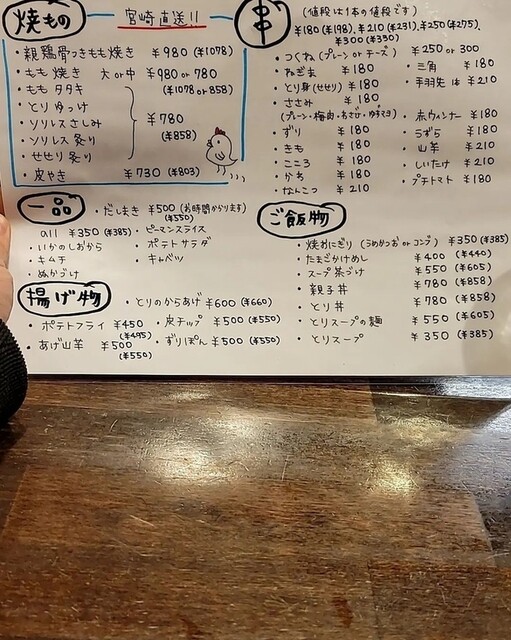 焼もの
宮崎直送!!
・親鶏骨つきもも焼き ¥980 (¥1078)
・もも焼き 大or中 ¥980 or 780
(¥1078 or 858)
・もも タタキ
・とり ゆっけ
・ソリレスさしみ
・ソリレス炙り
・せせり炙り
¥780
(¥858)
・皮やき ¥730 (¥803)
串
(値段は1本の値段です)
¥180 (¥198)、¥210 (¥231)、¥250 (¥275)、
¥300 (¥330)
・つくね (プレーン or チーズ) ¥250 or 300
・ねぎま ¥180
・とり身 (せせり) ¥180
・ささみ ¥180
(プレーン・梅肉・わさび・ゆずマヨ)
・ずり ¥180
・きも ¥180
・こころ ¥180
・かわ ¥180
・なんこつ ¥210
・三角 ¥180
・手羽先 ¥210
・赤ウィンナー ¥180
・うずら ¥180
・山芋 ¥210
・しいたけ ¥210
・プチトマト ¥180
一品
・だしまき ¥500 (お時間かかります)
(¥550)
all ¥350 (¥385)
・いかのしおから
・キムチ
・ぬかづけ
・ピーマンスライス
・ポテトサラダ
・キャベツ
揚げ物
・とりのからあげ ¥600 (¥660)
・ポテトフライ ¥450
(¥495)
・皮チップ ¥500 (¥550)
・あげ山芋 ¥500
(¥550)
・ずりぽん ¥500 (¥550)
ご飯物
・焼おにぎり (うめかつお or コンブ) ¥350 (¥385)
・たまごかけめし ¥400 (¥440)
・スープ茶づけ ¥550 (¥605)
・親子丼 ¥780 (¥858)
・とり丼 ¥780 (¥858)
・とりスープの麺 ¥550 (¥605)
・とりスープ ¥350 (¥385)